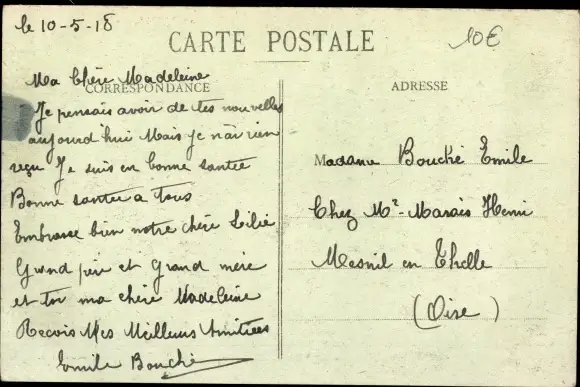 le 10-5-18
10€
CARTE POSTALE
CORRESPONDANCE
Ma Chère Madeleine
Je pensais avoir de tes nouvelles
aujourd'hui Mais je n'ai rien
reçu Je suis en bonne santée
Bonne santée a tous
Embrasse bien notre chère Lilie
Grand père et Grand mère
et toi ma chère Madeleine
Recois Mes Meilleurs Amitiées
Emile Bouché
ADRESSE
Madame Bouché Emile
Chez Mr Marais Henri
Mesnil en Thelle
(Oise)